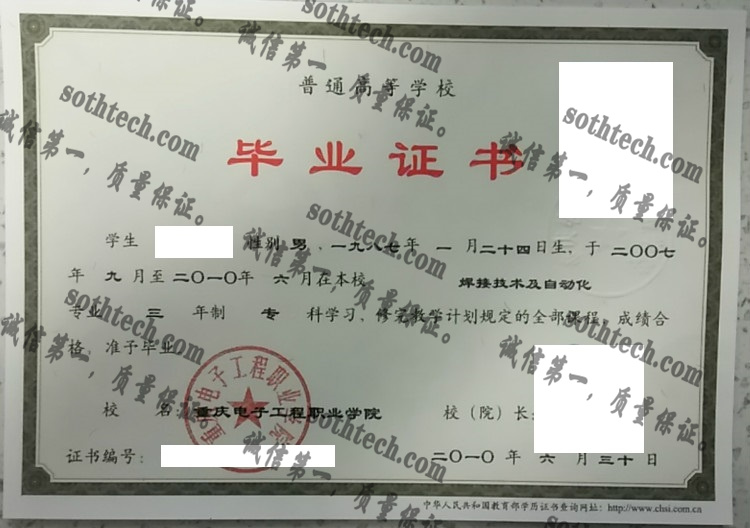 普通高等学校
毕业证书
学生 性别 男 、一九八七年 一 月二十四日生，于 二〇〇七
年 九 月至二〇一〇年 六 月在本校 焊接技术及自动化
专业 三 年制 专 科学习，修完教学计划规定的全部课程，成绩合
格，准予毕业
校 名：重庆电子工程职业学院 校（院）长：
证书编号： 二〇一〇 年 六 月三十日
中华人民共和国教育部学历证书查询网址：http://www.chsi.com.cn
重庆电子工程职业学院
sothtech.com
诚信第一，质量保证。
sothtech.com
诚信第一，质量保证。
sothtech.com
诚信第一，质量保证。
sothtech.com
诚信第一，质量保证。
sothtech.com
诚信第一，质量保证。
sothtech.com
诚信第一，质量保证。
sothtech.com
诚信第一，质量保证。
sothtech.com
诚信第一，质量保证。